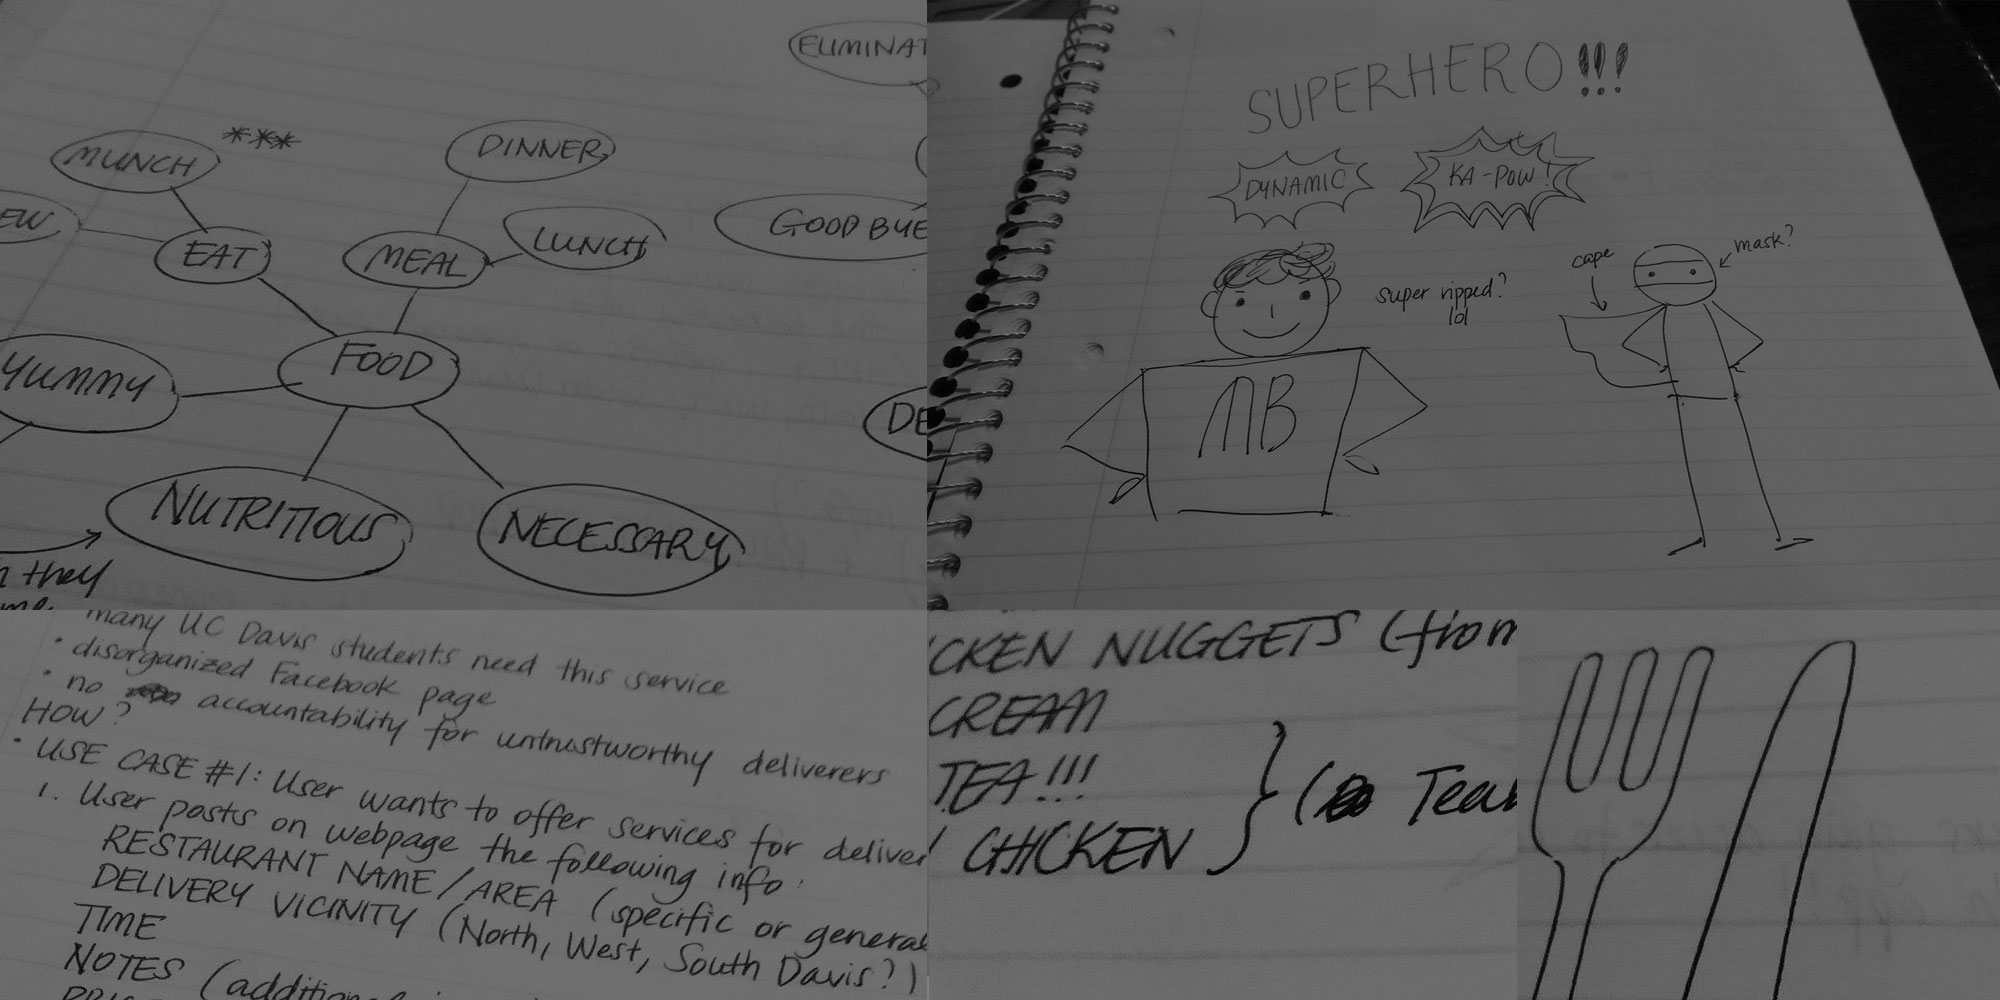 ELIMINAT
MUNCH ***
DINNER
EW
EAT
MEAL
LUNCH
GOOD BYE
YUMMY
FOOD
DE
NUTRITIOUS
NECESSARY
they
me
SUPERHERO!!!
DYNAMIC
KA-POW!
super ripped?
lol
cape
mask?
MB
many UC Davis students need this service
• disorganized Facebook page
• no accountability for untrustworthy deliverers
HOW?
• USE CASE #1: User wants to offer services for deliver
1. User posts on webpage the following info:
RESTAURANT NAME/AREA (specific or general
DELIVERY VICINITY (North, West, South Davis?)
TIME
NOTES (additional
ICKEN NUGGETS (from
CREAM
TEA!!!
CHICKEN } ( Tea